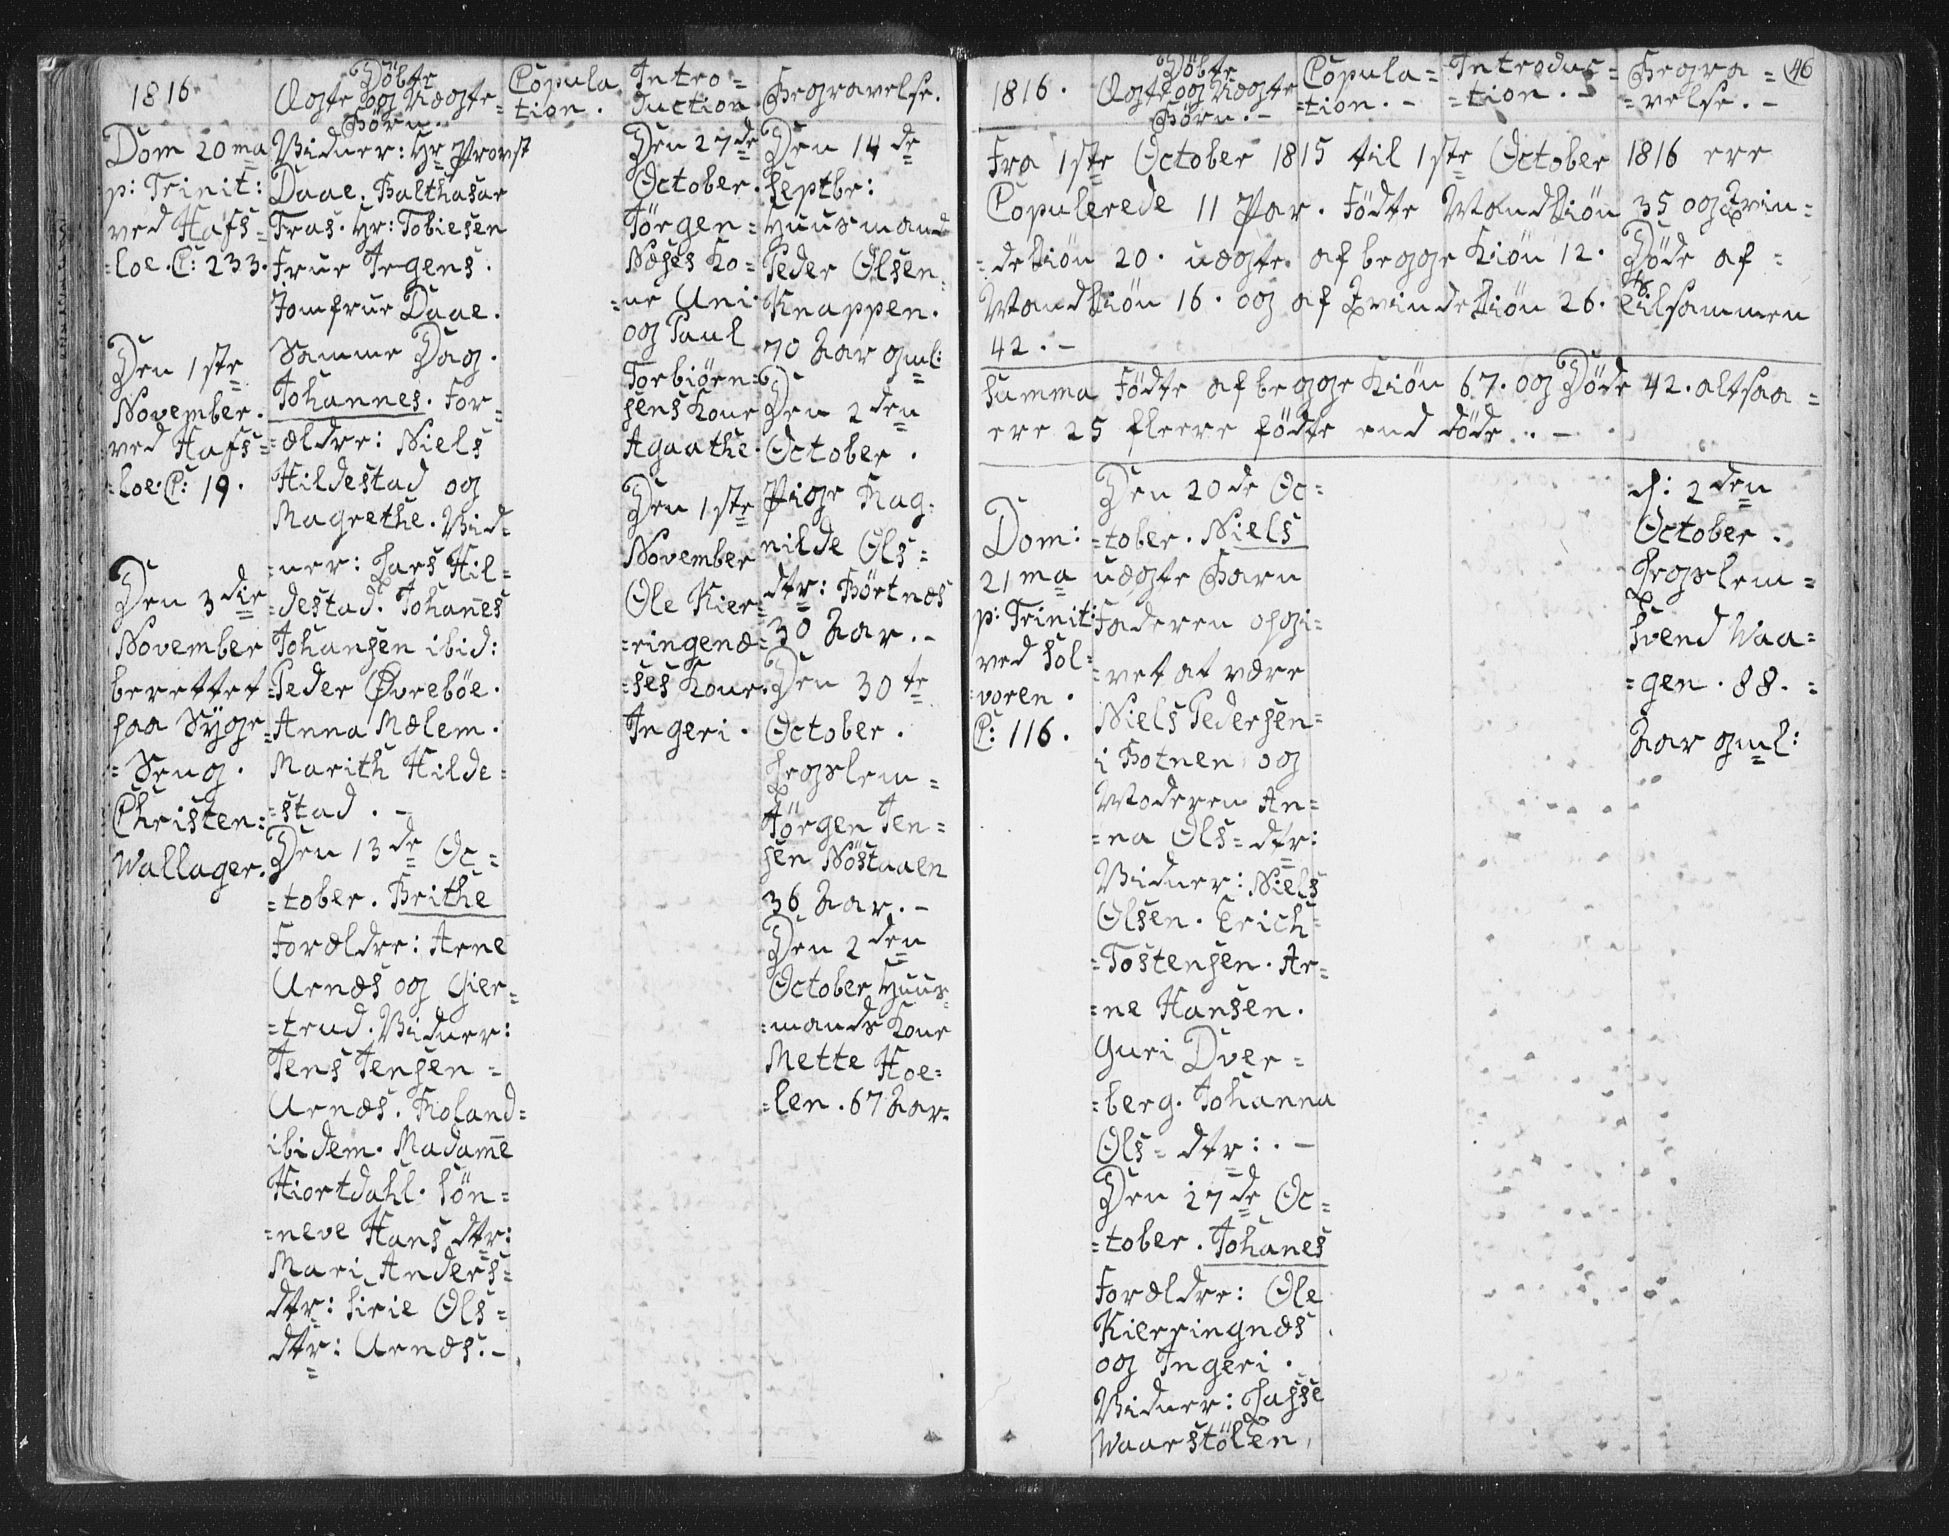 1816.
Døbte
Ægte og Uægte
Børn.
Copula
tion.
Intro=
duction
Begravelse.
Dom 20ma
p: Trinit:
ved Hafs=
=loe. C: 233.
Den 1ste
November.
ved Hafs=
=loe. C: 19.
Den 3die
November
berettet
paa Syge
= Seng.
Christen
Wallager.
Vidner: Hr Provst
Daae. Balthasar
Fras. Hr: Tobiesen
Frue Irgens.
Jomfrue Daae.
Samme Dag.
Johannes. For=
=ældre: Niels
Hildestad og
Magrethe. Vid=
=ner: Lars Hil=
=destad. Johanes
Johansen ibid:
Peder Øvrebøe.
Anna Mælem.
Marith Hilde=
=stad. -
Den 13de Oc=
=tober. Brithe
Forældre: Arne
Urnæs og Gier=
=trud. Vidner:
Jens Jensen =
Urnæs. Roland=
ibidem. Madame
Hiortdahl. Søn=
=neve Hans dtr:
Mari Anders=
dtr: Sirie Ols=
dtr: Urnæs. -
Den 27de
October.
Jørgen=
Næses Ko=
=ne Uni
og Paul
Torbiørn=
sens Kone
Agaathe.
Den 1ste
November
Ole Kier=
=ringenæ=
=ses Kone.
Ingeri.
Den 14de
Septbr:
Huusmand
Peder Olsen
Knappen.
70 Aar gml:
Den 2den
October.
Pige Rag=
nilde Ols=
dtr: Børtnæs
30 Aar. -
Den 30te
October.
Legslem=
Jørgen Jen=
sen Nøstaaen
36 Aar. -
Den 2den
October Huus=
=mands Kone
Mette Hoe=
=len. 67 Aar.
46
1816.
Døbte
Ægte og Uægte
Børn. -
Copula=
=tion. -
Introduc=
=tion. -
Begra=
=velse. -
Fra 1ste October 1815 til 1ste October 1816 ere
Copulerede 11 Par. Fødte Mandkiøn 35 og Qvin=
=dekiøn 20. uægte af begge Kiøn 12. Døde af =
Mandkiøn 16. og af Qvindekiøn 26. tilsammen
42. -
Summa Fødte af begge Kiøn 67. og Døde 42. altsaa =
ere 25 fleere fødte end døde. -
Dom:
21ma
p: Trinit:
ved Sol=
voren.
C: 116.
Den 20de Oc=
=tober. Niels
uægte Barn
Faderen opgi=
=vet at være
Niels Pedersen=
i Botnen og
Moderen An=
=na Ols= dtr:
Vidner: Niels
Olsen. Erich=
=Tostensen. Ar=
=ne Hansen.
Guri Dver=
=berg. Johanna
Ols= dtr: . -
Den 27de Oc=
=tober. Johanes
Forældre: Ole
Kierringnæs
og Ingeri.
Vidner: Lasse
Waarstølen
d: 2den
October.
Legslem=
Svend Waa=
=gen. 88. =
Aar gml: